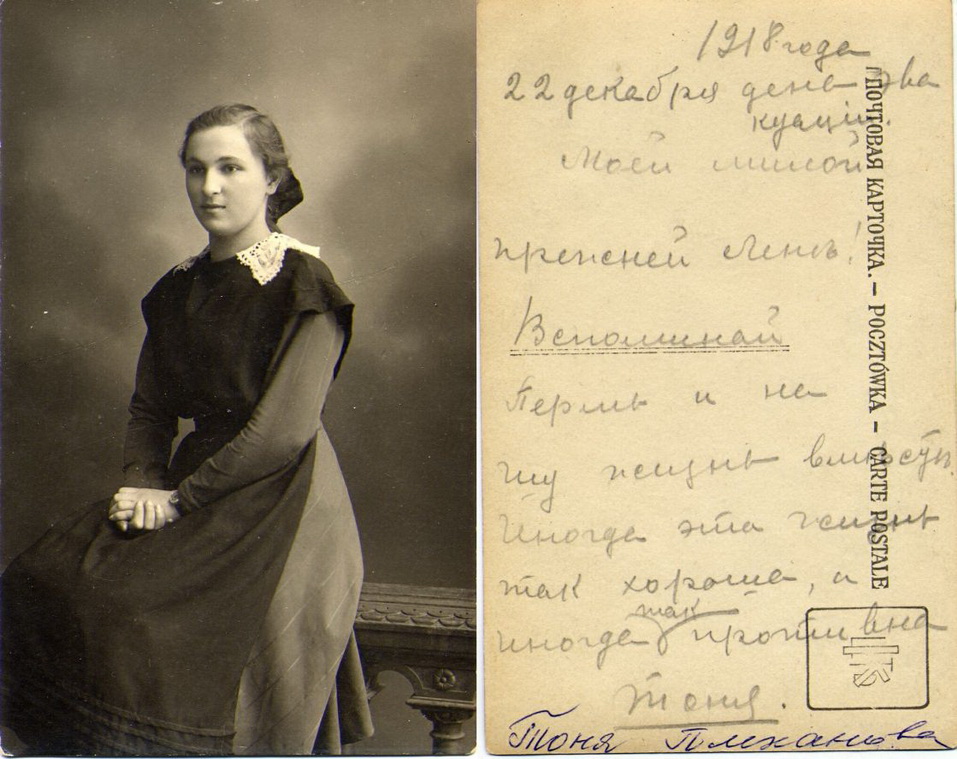 1918 года
22 декабря день эва
куаціи.
Моей милой
прежней Лень!
Вспоминай
Пермь и на
шу жизнь вмѣстѣ.
Иногда эта жизнь
так хороша, а
иногда так противна
Тоня.
Тоня Плеханова
ПОЧТОВАЯ КАРТОЧКА. — POCZTÓWKA — CARTE POSTALE